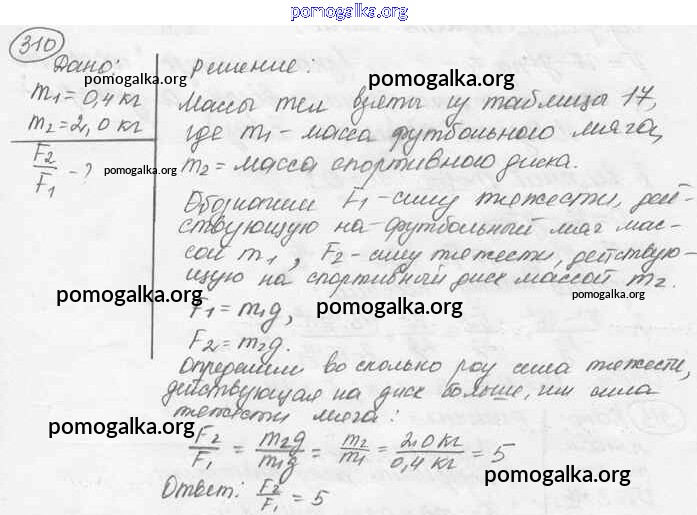 pomogalka.org
310
Дано:
pomogalka.org
m₁=0,4 кг
m₂=2,0 кг
F₂/F₁ - ?
pomogalka.org
решение:
pomogalka.org
Массы тел взяты из таблицы 17,
pomogalka.org
где m₁ - масса футбольного мяча,
m₂ = масса спортивного диска.
pomogalka.org
Обозначим F₁ - силу тяжести, дей-
ствующую на футбольный мяч мас-
сой m₁, F₂ - силу тяжести, действую-
щую на спортивный диск массой m₂.
pomogalka.org
pomogalka.org
pomogalka.org
F₁ = m₁g,
F₂ = m₂g.
Определим во сколько раз сила тяжести,
действующая на диск больше, чем сила
pomogalka.org
тяжести мяча:
pomogalka.org
F₂/F₁ = m₂g/m₁g = m₂/m₁ = 2,0 кг/0,4 кг = 5
pomogalka.org
Ответ: F₂/F₁ = 5